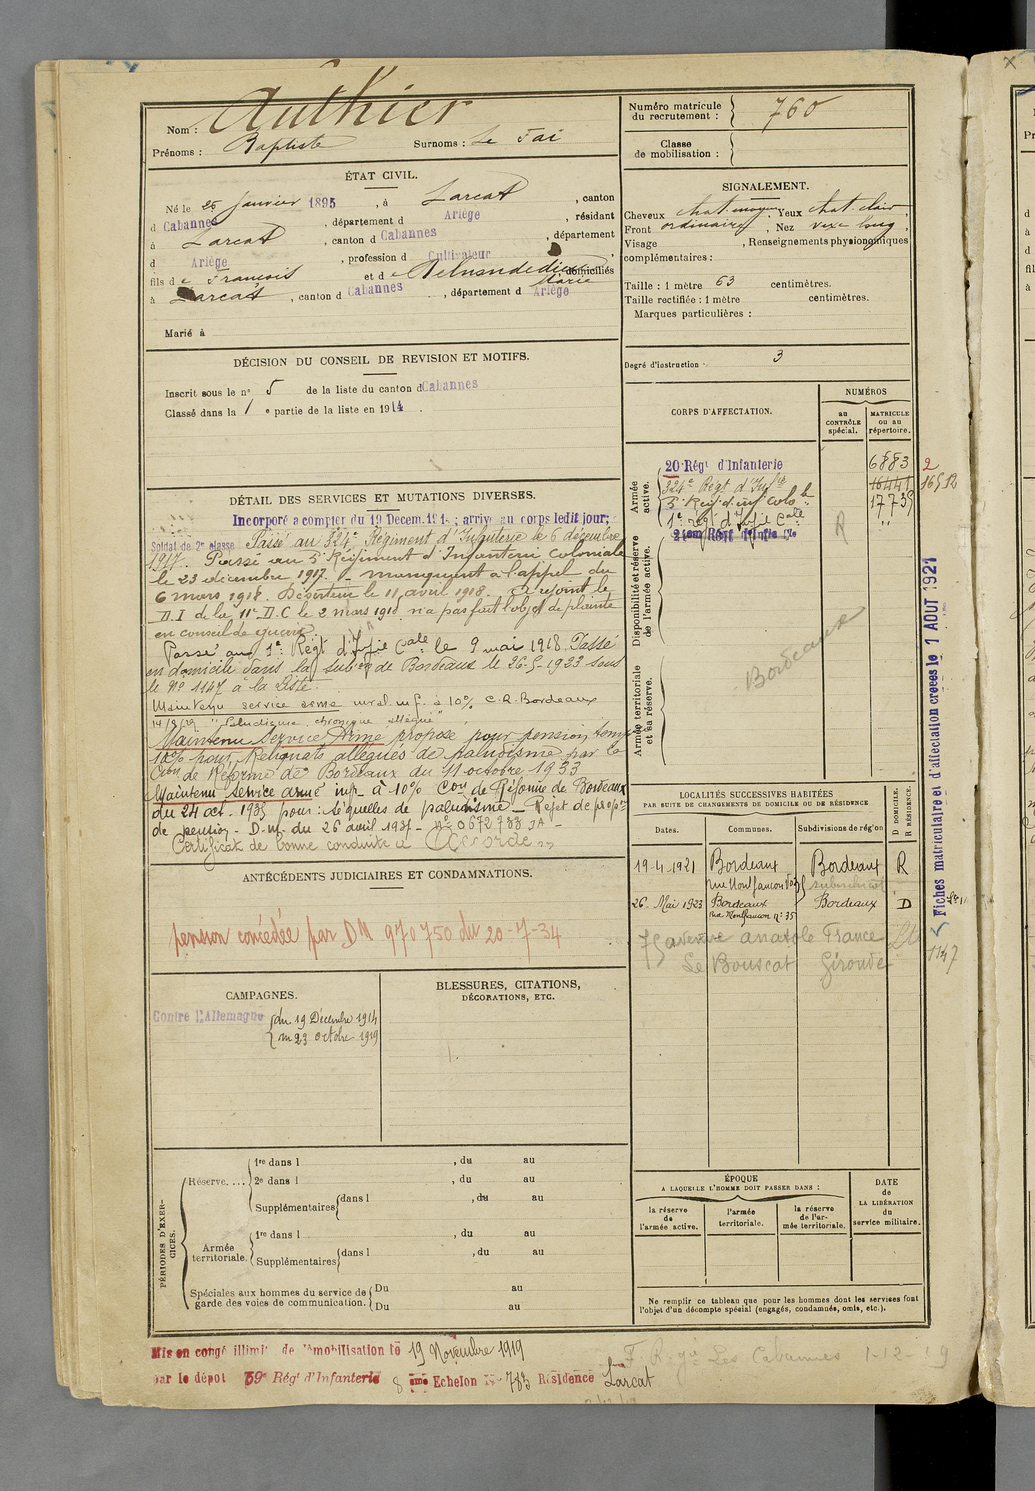 Nom : Authier
Prénoms : Baptiste Surnoms : Le Fai
Numéro matricule
du recrutement : 760
Classe
de mobilisation :
ÉTAT CIVIL.
Né le 25 janvier 1895, à Larcat, canton
d Cabannes, département d Ariège, résidant
à Larcat, canton d Cabannes, département
d Ariège, profession d Cultivateur,
fils de François et de Marie, domiciliés
à Larcat, canton d Cabannes, département d Ariège
Marié à
SIGNALEMENT.
Cheveux chat moyen, Yeux chat clair,
Front ordinaire, Nez vexe long,
Visage , Renseignements physionomiques
complémentaires :
Taille : 1 mètre 63 centimètres.
Taille rectifiée : 1 mètre centimètres.
Marques particulières :
Degré d'instruction : 3
DÉCISION DU CONSEIL DE REVISION ET MOTIFS.
Inscrit sous le n° 5 de la liste du canton d Cabannes
Classé dans la 1e partie de la liste en 1914.
CORPS D'AFFECTATION.
NUMÉROS
au CONTRÔLE spécial.
MATRICULE ou au répertoire.
Armée active.
20 Régt d'Infanterie 6883
324e Régt d'Infie 16441
2
16512
5e Régt d'inf colole 17739
1e régt d'Infie Cale "
R
Disponibilité et réserve de l'armée active.
Bordeaux
Armée territoriale et sa réserve.
DÉTAIL DES SERVICES ET MUTATIONS DIVERSES.
Incorporé a compter du 19 Decem. 1914 ; arrivé au corps ledit jour;
Soldat de 2e classe Passé au 324e Régiment d'Infanterie le 6 décembre
1917. Passé au 5e Régiment d'Infanterie Coloniale
le 23 décembre 1917. manquant à l'appel du
6 mars 1918. Déserteur le 11 avril 1918. A rejoint le
D.I de la 11e D.C le 2 mars 1918 n'a pas fait l'objet de plainte
en conseil de guerre.
Passé au 1er Régt d'Infie Cale le 9 mai 1918. Passé
en domicile dans la subon de Bordeaux le 26-5-1923 sous
le No 1147 à la liste.
Maintenu service armé à 10% C.R. Bordeaux
"Paludisme chronique allégué"
Maintenu Service Armé propose pour pension temp
10% pour Reliquats allégués de paludisme par la
Con de Réforme de Bordeaux du 11 octobre 1933
Maintenu Service armé inf- à 10% Con de Réforme de Bordeaux
du 24 oct. 1935 pour : séquelles de paludisme - Rejet de propon
de pension - D.M. du 26 avril 1937 - no 0672733 JA -
Certificat de bonne conduite a Accordé
Fiches matriculaire et d'affectation créées le 1 AOUT 1921
1147
LOCALITÉS SUCCESSIVES HABITÉES
PAR SUITE DE CHANGEMENTS DE DOMICILE OU DE RÉSIDENCE
Dates. Communes. Subdivisions de région D DOMICILE. R RÉSIDENCE.
19-4-1921 Bordeaux Bordeaux R
rue Monfaucon
26 Mai 1923 Bordeaux Bordeaux D
rue Monfaucon no 35
75 avenue Anatole France
Le Bouscat Gironde
ANTÉCÉDENTS JUDICIAIRES ET CONDAMNATIONS.
pension concédée par DM 970750 du 20-7-34
CAMPAGNES.
Contre l'Allemagne du 19 Decembre 1914
au 23 octobre 1919
BLESSURES, CITATIONS,
DÉCORATIONS, ETC.
PÉRIODES D'EXERCICES.
Réserve....
1re dans l , du au
2e dans l , du au
Supplémentaires dans l , du au
Armée territoriale.
1re dans l , du au
Supplémentaires dans l , du au
Spéciales aux hommes du service de Du au
garde des voies de communication. Du au
ÉPOQUE
A LAQUELLE L'HOMME DOIT PASSER DANS :
la réserve de l'armée active.
l'armée territoriale.
la réserve de l'armée territoriale.
DATE de LA LIBÉRATION du service militaire.
Ne remplir ce tableau que pour les hommes dont les services font
l'objet d'un décompte spécial (engagés, condamnés, omis, etc.).
Mis en congé illimité de démobilisation le 19 Novembre 1919
par le dépôt 59e Régt d'Infanterie 8 ème Echelon No 783 Résidence Larcat
Les Cabannes 1-12-19